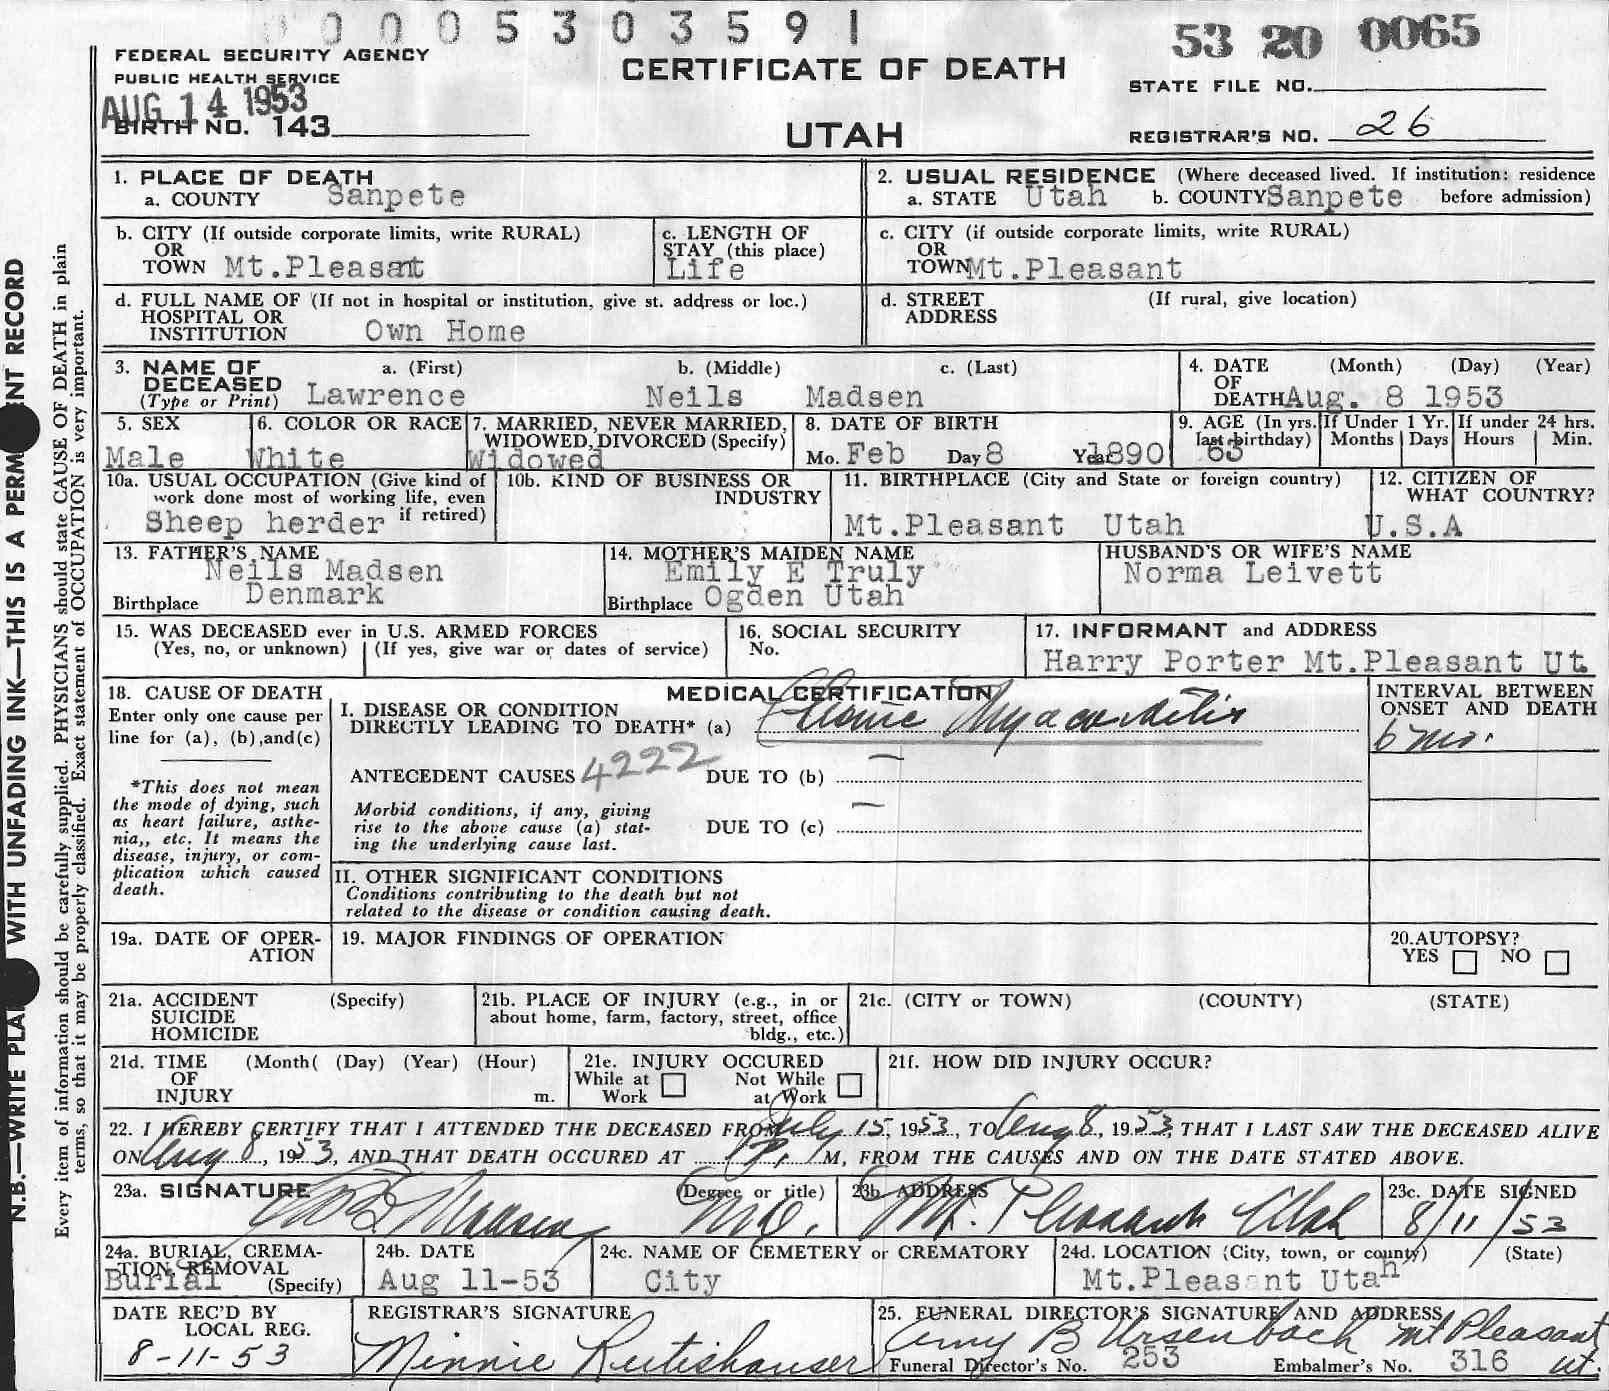 0 0 0 0 5 3 0 3 5 9 1
53 20 0065
FEDERAL SECURITY AGENCY
PUBLIC HEALTH SERVICE
AUG 14 1953
BIRTH NO. 143
CERTIFICATE OF DEATH
UTAH
STATE FILE NO.
REGISTRAR'S NO. 26
1. PLACE OF DEATH
a. COUNTY Sanpete
2. USUAL RESIDENCE (Where deceased lived. If institution: residence
a. STATE Utah b. COUNTY Sanpete before admission)
b. CITY (If outside corporate limits, write RURAL)
OR
TOWN Mt.Pleasant
c. LENGTH OF
STAY (this place)
Life
c. CITY (if outside corporate limits, write RURAL)
OR
TOWN Mt.Pleasant
d. FULL NAME OF (If not in hospital or institution, give st. address or loc.)
HOSPITAL OR
INSTITUTION Own Home
d. STREET (If rural, give location)
ADDRESS
3. NAME OF DECEASED (Type or Print)
a. (First) b. (Middle) c. (Last)
Lawrence Neils Madsen
4. DATE (Month) (Day) (Year)
OF
DEATH Aug. 8 1953
5. SEX
Male
6. COLOR OR RACE
White
7. MARRIED, NEVER MARRIED,
WIDOWED, DIVORCED (Specify)
Widowed
8. DATE OF BIRTH
Mo. Feb Day 8 Year 1890
9. AGE (In yrs.
last birthday)
63
If Under 1 Yr.
Months Days
If under 24 hrs.
Hours Min.
10a. USUAL OCCUPATION (Give kind of
work done most of working life, even
if retired)
Sheep herder
10b. KIND OF BUSINESS OR
INDUSTRY
11. BIRTHPLACE (City and State or foreign country)
Mt.Pleasant Utah
12. CITIZEN OF
WHAT COUNTRY?
U.S.A
13. FATHER'S NAME
Neils Madsen
Birthplace Denmark
14. MOTHER'S MAIDEN NAME
Emily E Truly
Birthplace Ogden Utah
HUSBAND'S OR WIFE'S NAME
Norma Leivett
15. WAS DECEASED ever in U.S. ARMED FORCES
(Yes, no, or unknown) (If yes, give war or dates of service)
16. SOCIAL SECURITY
No.
17. INFORMANT and ADDRESS
Harry Porter Mt.Pleasant Ut.
18. CAUSE OF DEATH
Enter only one cause per
line for (a), (b),and(c)
*This does not mean
the mode of dying, such
as heart failure, asthe-
nia,, etc. It means the
disease, injury, or com-
plication which caused
death.
MEDICAL CERTIFICATION
I. DISEASE OR CONDITION
DIRECTLY LEADING TO DEATH* (a) Chronic Myocarditis
ANTECEDENT CAUSES 4222 DUE TO (b) —
Morbid conditions, if any, giving
rise to the above cause (a) stat-
ing the underlying cause last.
DUE TO (c) —
II. OTHER SIGNIFICANT CONDITIONS
Conditions contributing to the death but not
related to the disease or condition causing death.
INTERVAL BETWEEN
ONSET AND DEATH
6 mo.
19a. DATE OF OPER-
ATION
19. MAJOR FINDINGS OF OPERATION
20.AUTOPSY?
YES NO
21a. ACCIDENT (Specify)
SUICIDE
HOMICIDE
21b. PLACE OF INJURY (e.g., in or
about home, farm, factory, street, office
bldg., etc.)
21c. (CITY or TOWN) (COUNTY) (STATE)
21d. TIME (Month( (Day) (Year) (Hour)
OF
INJURY m.
21e. INJURY OCCURED
While at Work Not While at Work
21f. HOW DID INJURY OCCUR?
22. I HEREBY CERTIFY THAT I ATTENDED THE DECEASED FROM July 15, 1953, TO Aug 8, 1953, THAT I LAST SAW THE DECEASED ALIVE
ON Aug 8, 1953, AND THAT DEATH OCCURED AT M, FROM THE CAUSES AND ON THE DATE STATED ABOVE.
23a. SIGNATURE (Degree or title)
Madsen M.D.
23b. ADDRESS
Mt. Pleasant Utah
23c. DATE SIGNED
8/11/53
24a. BURIAL, CREMA-
TION, REMOVAL
(Specify)
Burial
24b. DATE
Aug 11-53
24c. NAME OF CEMETERY or CREMATORY
City
24d. LOCATION (City, town, or county) (State)
Mt.Pleasant Utah
DATE REC'D BY
LOCAL REG.
8-11-53
REGISTRAR'S SIGNATURE
Minnie Rutishauser
25. FUNERAL DIRECTOR'S SIGNATURE AND ADDRESS
B Ursenbach Mt Pleasant
Ut.
Funeral Director's No. 253 Embalmer's No. 316
N.B.—WRITE PLA WITH UNFADING INK—THIS IS A PERM NT RECORD
Every item of information should be carefully supplied. PHYSICIANS should state CAUSE OF DEATH in plain
terms, so that it may be properly classified. Exact statement of OCCUPATION is very important.